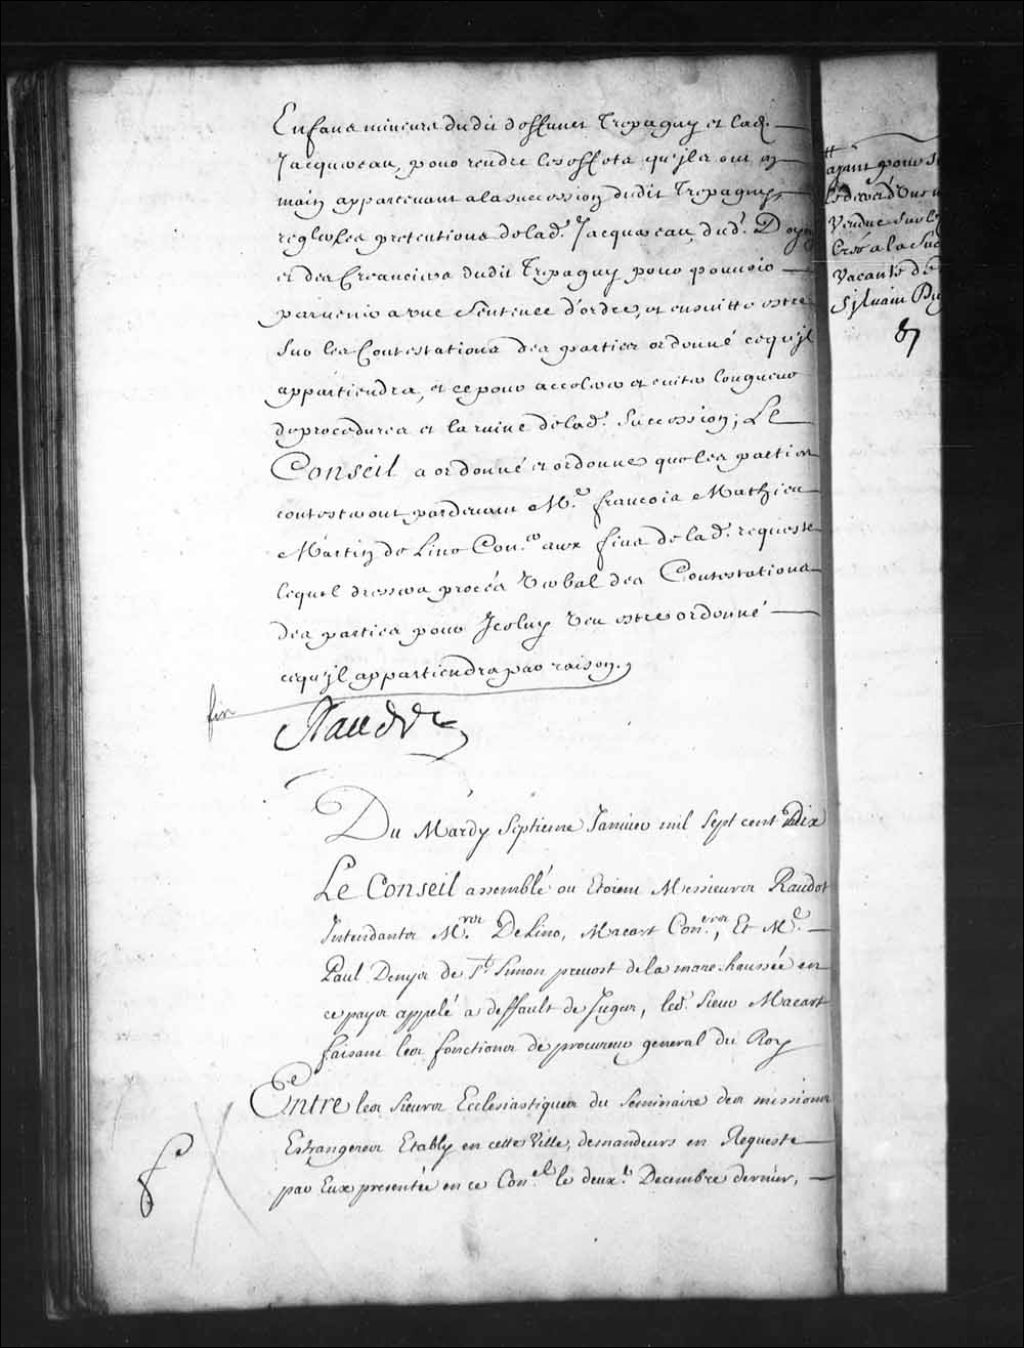 Enfans mineurs dudit deffunct Trepagny et lad.
Jacquereau, pour rendre les effets qu'jls ont en
main appartenant a la succession dudit Trepagny,
regler les pretentions de lad. Jacquereau, dud. Doyon
et des Creanciers dudit Trepagny pour pouvoir
parvenir a une Sentence d'ordre, et ensuitte estre
sur les Contestations des parties ordonné ce qu'jl
appartiendra, et ce pour accelerer et eviter longueur
de procedures et la ruine de lad. Succession; Le
Conseil a ordonné et ordonne que les parties
contesteront pardevant Me. francois Mathieu
Martin de Lino Coner. aux fins de lad. requeste
lequel dressera procés verbal des Contestations
des parties pour Jceluy veu estre ordonné
ce qu'jl appartiendra par raison.,
fin
Raudot
Du Mardy Septieme Janvier mil sept cent dix
Le Conseil assemblé ou Etoient Messieurs Raudot
Intendants Mrs. De Lino, Macart Coners., Et Me.
Paul Denys de St. Simon prevost de la mareschaussée en
ce pays appelé a deffault de Juges, led. Sieur Macart
faisant les fonctions de procureur general du Roy
Entre les Sieurs Ecclesiastiques du Seminaire des missions
Estrangeres Etably en cette Ville, demandeurs en Requeste
par Eux presentée en ce Conel. le deuxe. Decembre dernier,
ayant pour
vendue sur les
Creés a la Suc
vacante de
Sylvain